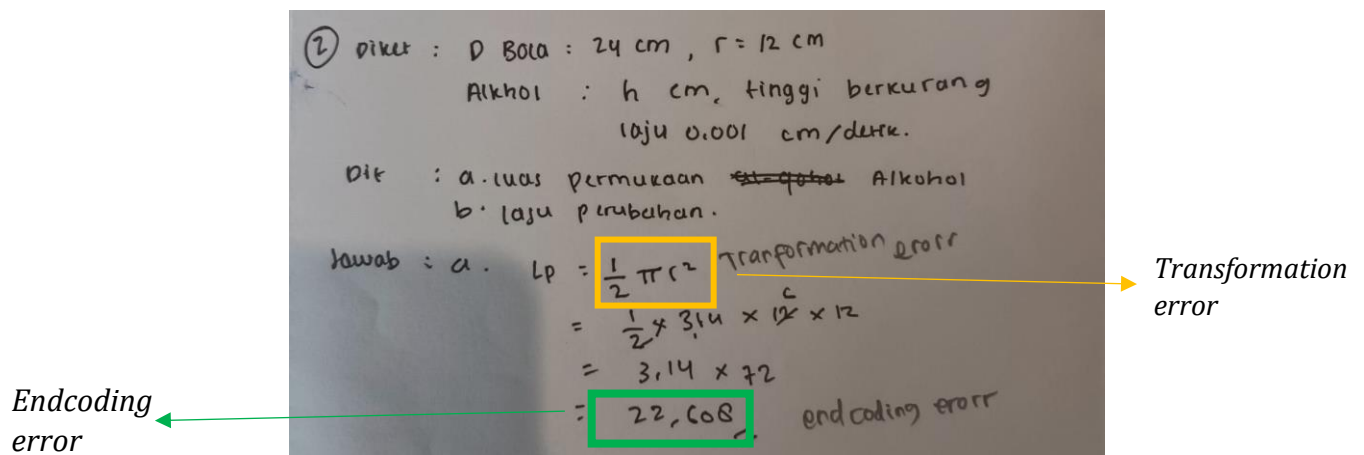 ② Diket : D Bola : 24 cm , r = 12 cm
Alkhol : h cm, tinggi berkurang
laju 0.001 cm/detik.
Dit : a. luas permukaan Alkohol
b. laju perubahan.
Jawab : a. Lp = 1/2 π r² Tranformation erorr
= 1/2 × 3,14 × 12 × 12
= 3,14 × 72
= 22,608 endcoding erorr
Transformation
error
Endcoding
error